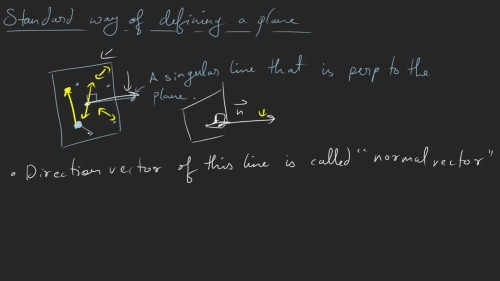 Standard way of defining a plane
A singular line that is perp to the
plane.
n
• Direction vector of this line is called "normal vector"